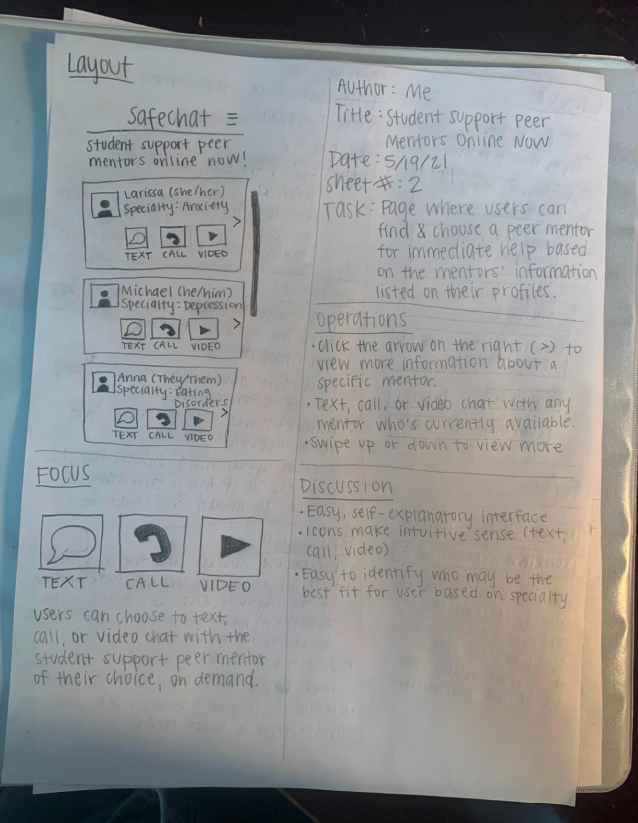 Layout
Safechat ≡
Student support peer
mentors online now!
Larissa (she/her)
Specialty: Anxiety
>
TEXT CALL VIDEO
Michael (he/him)
Specialty: Depression
>
TEXT CALL VIDEO
Anna (They/Them)
Specialty: Eating
Disorders
>
TEXT CALL VIDEO
FOCUS
TEXT CALL VIDEO
users can choose to text,
call, or video chat with the
student support peer mentor
of their choice, on demand.
Author: Me
Title: Student Support Peer
Mentors Online Now
Date: 5/19/21
Sheet #: 2
Task: Page where users can
find & choose a peer mentor
for immediate help based
on the mentors' information
listed on their profiles.
Operations
• Click the arrow on the right (>) to
view more information about a
specific mentor.
• Text, call, or video chat with any
mentor who's currently available.
• Swipe up or down to view more
Discussion
• Easy, self-explanatory interface
• Icons make intuitive sense (text,
call, video)
• Easy to identify who may be the
best fit for user based on specialty